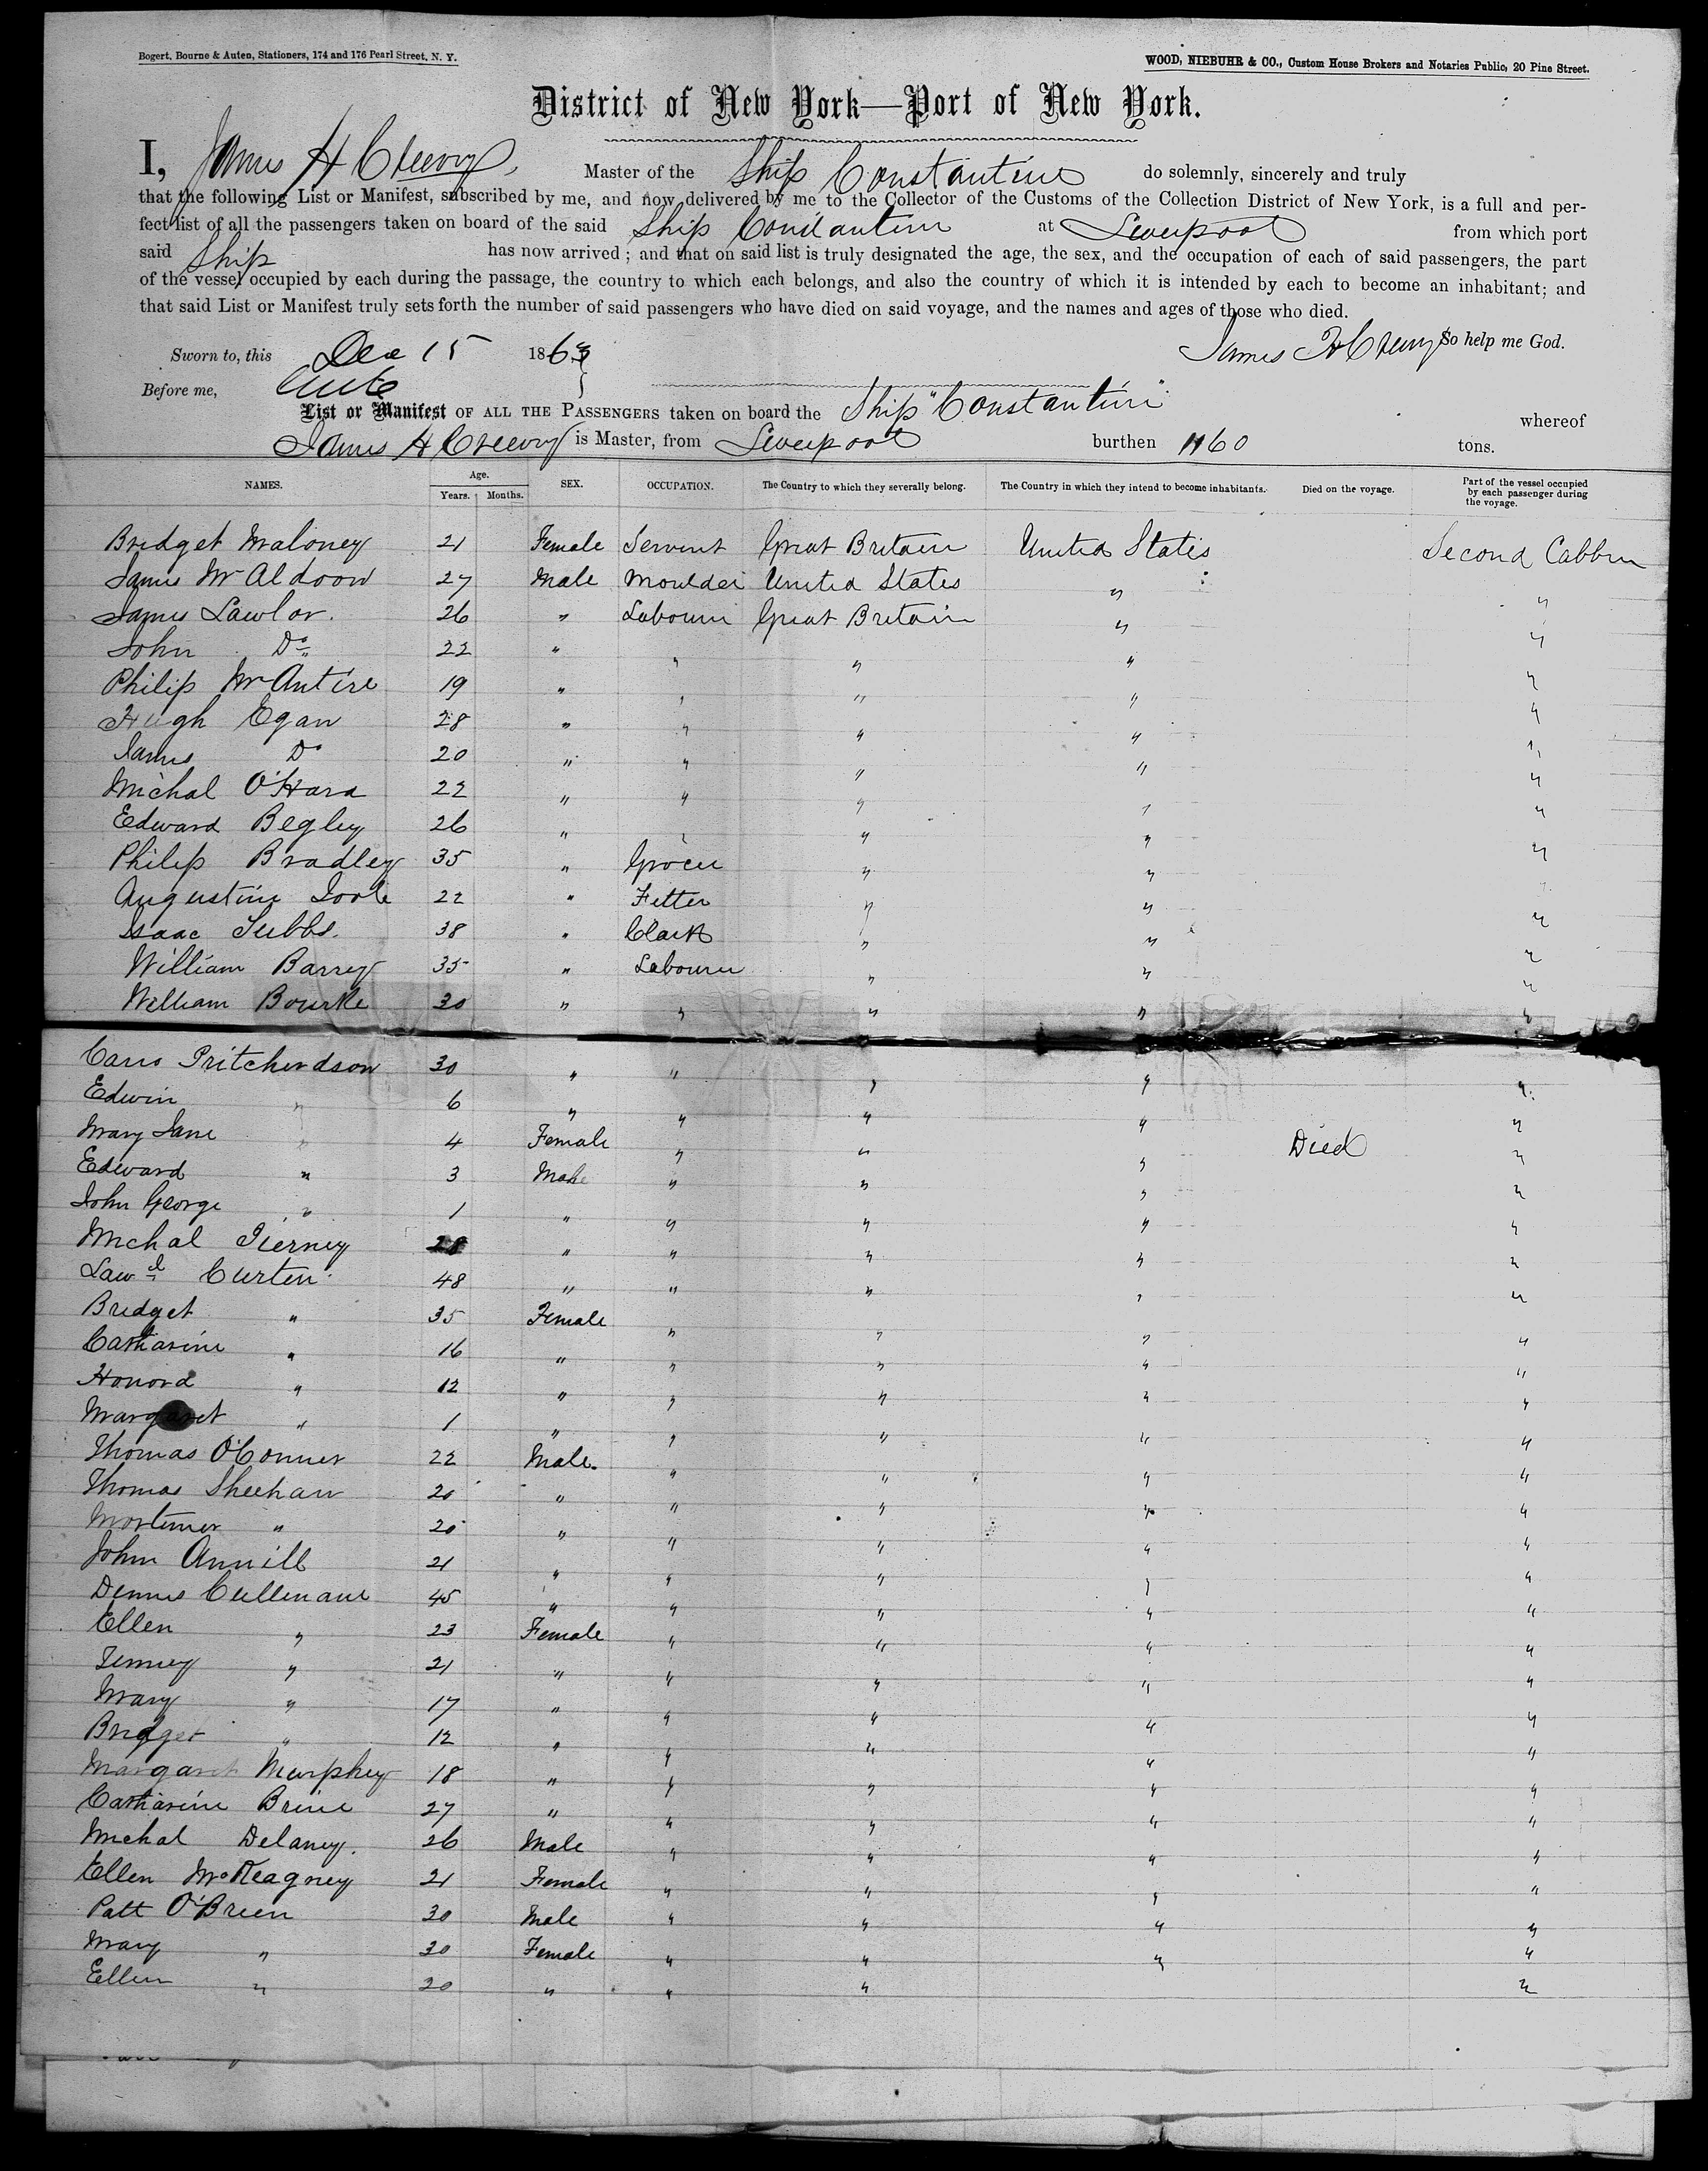 Bogert, Bourne & Auten, Stationers, 174 and 176 Pearl Street, N. Y.
WOOD, NIEBUHR & CO., Custom House Brokers and Notaries Public, 20 Pine Street.
District of New York—Port of New York.
I, James H Creevy, Master of the Ship Constantine do solemnly, sincerely and truly
that the following List or Manifest, subscribed by me, and now delivered by me to the Collector of the Customs of the Collection District of New York, is a full and per-
fect list of all the passengers taken on board of the said Ship Constantine at Liverpool from which port
said Ship has now arrived; and that on said list is truly designated the age, the sex, and the occupation of each of said passengers, the part
of the vessel occupied by each during the passage, the country to which each belongs, and also the country of which it is intended by each to become an inhabitant; and
that said List or Manifest truly sets forth the number of said passengers who have died on said voyage, and the names and ages of those who died.
James H Creevy So help me God.
Sworn to, this Dec 15 1863
Before me,
List or Manifest OF ALL THE PASSENGERS taken on board the Ship "Constantine" whereof
James H Creevy is Master, from Liverpool burthen 1160 tons.
NAMES. Age. Years. Months. SEX. OCCUPATION. The Country to which they severally belong. The Country in which they intend to become inhabitants. Died on the voyage. Part of the vessel occupied by each passenger during the voyage.
Bridget Maloney 21 Female Servent Great Britain United States Second Cabbin
James McAldoon 27 Male Moulder United States " "
James Lawlor. 26 " Labourer Great Britain " "
John Do 22 " " " " "
Philip McAntire 19 " " " " "
Hugh Egan 28 " " " " "
James Do 20 " " " " "
Michal O'Hara 22 " " " " "
Edward Begley 26 " " " " "
Philip Bradley 35 " Grocer " " "
Augustine Toole 22 " Fitter " " "
Isaac Tubbs. 38 " Clark " " "
William Barry 35 " Labourer " " "
William Bourke 30 " " " " "
Pritcherdson 30 " " " " "
Edwin " 6 " " " " "
Mary Jane " 4 Female " " " Died "
Edward " 3 Male " " " "
John George " 1 " " " " "
Michal Tierney 28 " " " " "
Curten 48 " " " " "
Bridget " 35 Female " " " "
Catharine " 16 " " " " "
Honora " 12 " " " " "
Margaret " 1 " " " " "
Thomas O'Conner 22 Male " " " "
Thomas Sheehan 20 " " " " "
Mortimer " 20 " " " " "
John 21 " " " " "
Dennis Cullenane 45 " " " " "
Ellen " 23 Female " " " "
" 21 " " " " "
Mary " 17 " " " " "
Bridget " 12 " " " " "
Margaret Murphey 18 " " " " "
Catharine Brine 27 " " " " "
Michal Delaney. 26 Male " " " "
Ellen McKeagney 21 Female " " " "
Patt O'Breen 30 Male " " " "
Mary " 30 Female " " " "
Ellen " 20 " " " "